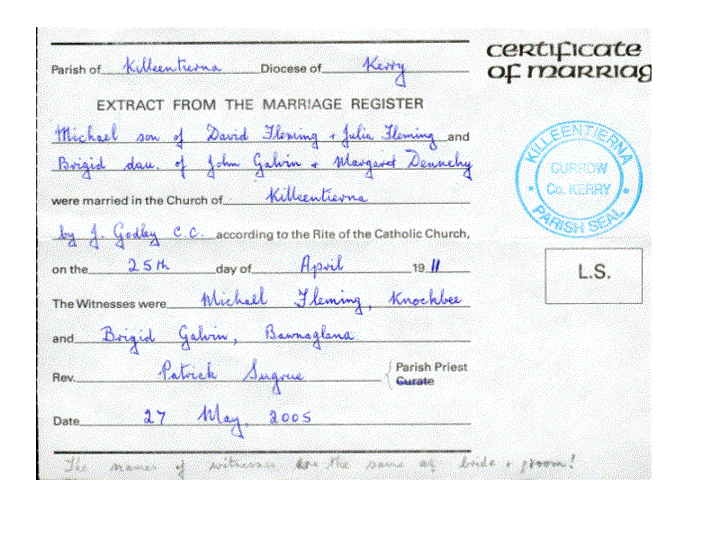 certificate
of marriag
Parish of Killeentierna Diocese of Kerry
EXTRACT FROM THE MARRIAGE REGISTER
Michael son of David Fleming + Julia Fleming and
Brigid dau. of John Galvin + Margaret Dennehy
were married in the Church of Killeentierna
by J. Godley C.C. according to the Rite of the Catholic Church,
on the 25th day of April 1911
The Witnesses were Michael Fleming, Knockbee
and Brigid Galvin, Bawnaglana
Rev. Patrick Sugrue Parish Priest
Curate
Date 27 May, 2005
The names of witnesses are the same as bride + groom!
KILLEENTIERNA
CURROW
Co. KERRY
PARISH SEAL
L.S.